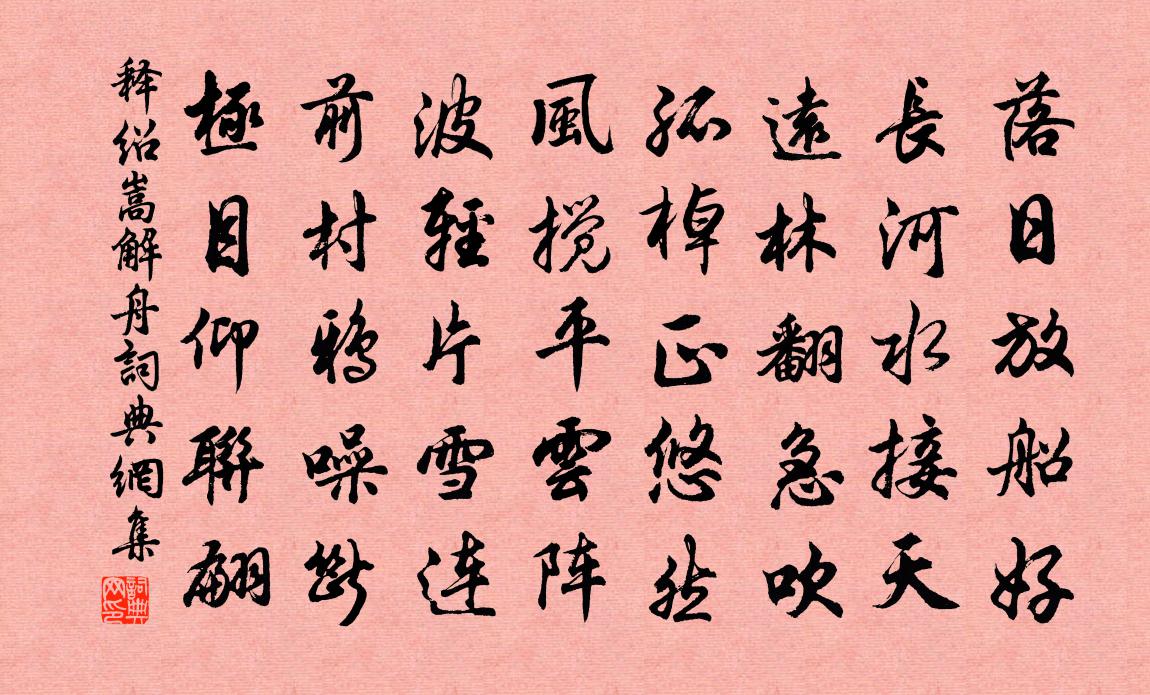 落日放船好
長河水接天
遠林翻急吹
孤棹正悠然
風搅平雲阵
波輕片雪连
前村鴉噪断
極目仰聯翩
释绍嵩解舟詞典網集
詞典網印